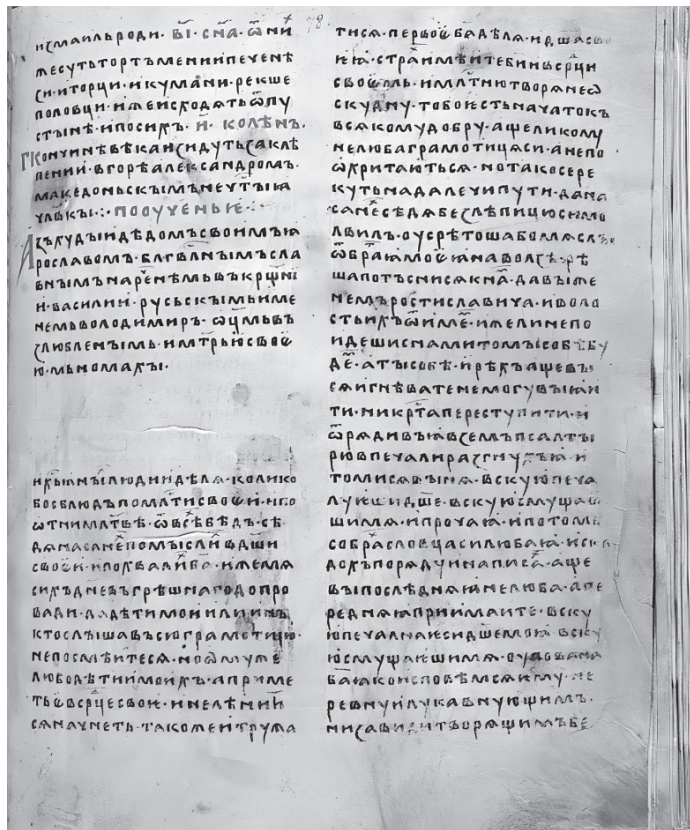 измаилъ роди · в҃і · сн҃а · ѿ ни
же суть тортъмени и печенѣ
зи · и торци · и кумани · рекше
половци · иже исходѧть ѿ пу
стынѣ · и по сихъ · и҃ · колѣн ·
г кончинѣ вѣка изидуть заклѣ
пении в горѣ александромъ ·
македоньскымъ неч҃тыꙗ
члв҃кы ·:· пооученьѥ ·:·
Азъ худыи дѣдомъ своимъ ꙗ
рославомъ · блг҃влн҃ымъ сла
внымъ нареч҃нѣмь въ кр҃щни
и · василии · русьскымь име
немь володимиръ · ѡц҃мь въ
злюбленымь · и мт҃рью своѥ
ю · мьномахы ·
и хс҃ꙗныхъ людии дѣлѧ · колико
бо сблюдъ по млт҃и своѥи · и по
ѡтни млт҃вѣ · ѿ всѣ бѣдъ · сѣ
дѧ на сане помысли в дш҃и
своѥи · и похвали ба҃ · иже мѧ
сихъ дневъ грѣшнаго допро
вади · да дѣти мои или инъ
кто слышавъ сю грамотицю ·
не посмѣитесѧ · но ѡму же
любо дѣтии моихъ · а приме
ть є в срд҃це своѥ · и не лѣни
сѧ начнеть · такоже и тружа
тисѧ · первоѥ ба҃ дѣлѧ · и дш҃а свое
иꙗ · страх имѣите би҃и в ср҃ци
своѥмь · и млт҃ню творѧ неѡ
скудну · то бо ѥсть начатокъ
всѧкому добру · аще ли кому
не люба грамотицѧ си · а не по
ѡхритаютьсѧ · но тако се ре
куть на далечи пути · да на
сане сѣдѧ безлѣпицю си мо
лвилъ · оусрѣтоша бо мѧ слы
ѿ братꙗ моеꙗ на волзѣ · рѣ
ша потъснисѧ к на · да выже
немъ ростиславича · и воло
сть ихъ ѿиме · иже ли не по
идеши с нами то мы собѣ бу
де · а ты собѣ · и рѣхъ аще вы
сѧ и гнѣваѥте не могу вы ꙗ и
ти · ни крт҃а переступити · и
ѿрѧдивъ ꙗ вземъ псалты
рю в печали разгнухъ ꙗ · и
то ми сѧ вынѧ · вскую печа
луѥши дш҃е · вскую смущаѥ
ши мѧ · и прочаꙗ · и потомь
собра словца си любаꙗ · и скл
дохъ по рѧду и написа · аще
вы послѣднѧꙗ не люба · а пе
реднѧꙗ приимаите · вску
ю печална ѥси дш҃е моꙗ · вску
ю смущаѥши мѧ · оуповаи на
ба҃ ꙗко исповѣмсѧ ѥму · не
ревнуи лукавнующимъ ·
ни завиди творѧщимъ бе